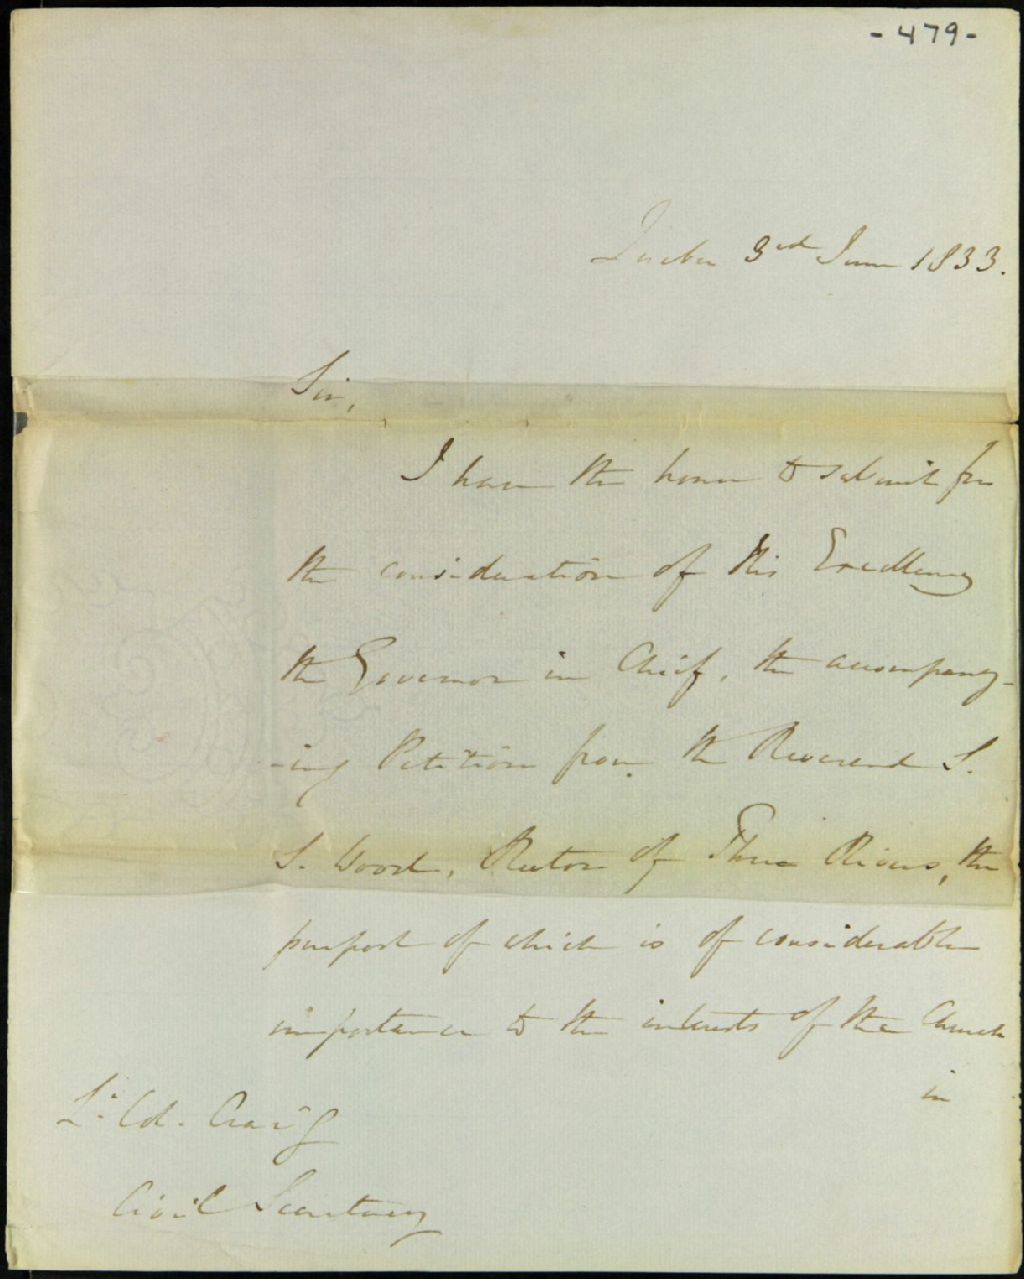 - 479 -
Quebec 3rd June 1833.
Sir,
I have the honor to submit for
the consideration of His Excellency
the Governor in Chief, the accompany-
-ing Petition from the Reverend S.
S. Wood, Rector of Three Rivers, the
purport of which is of considerable
importance to the interests of the Church
in
Lt. Col. Craig
Civil Secretary